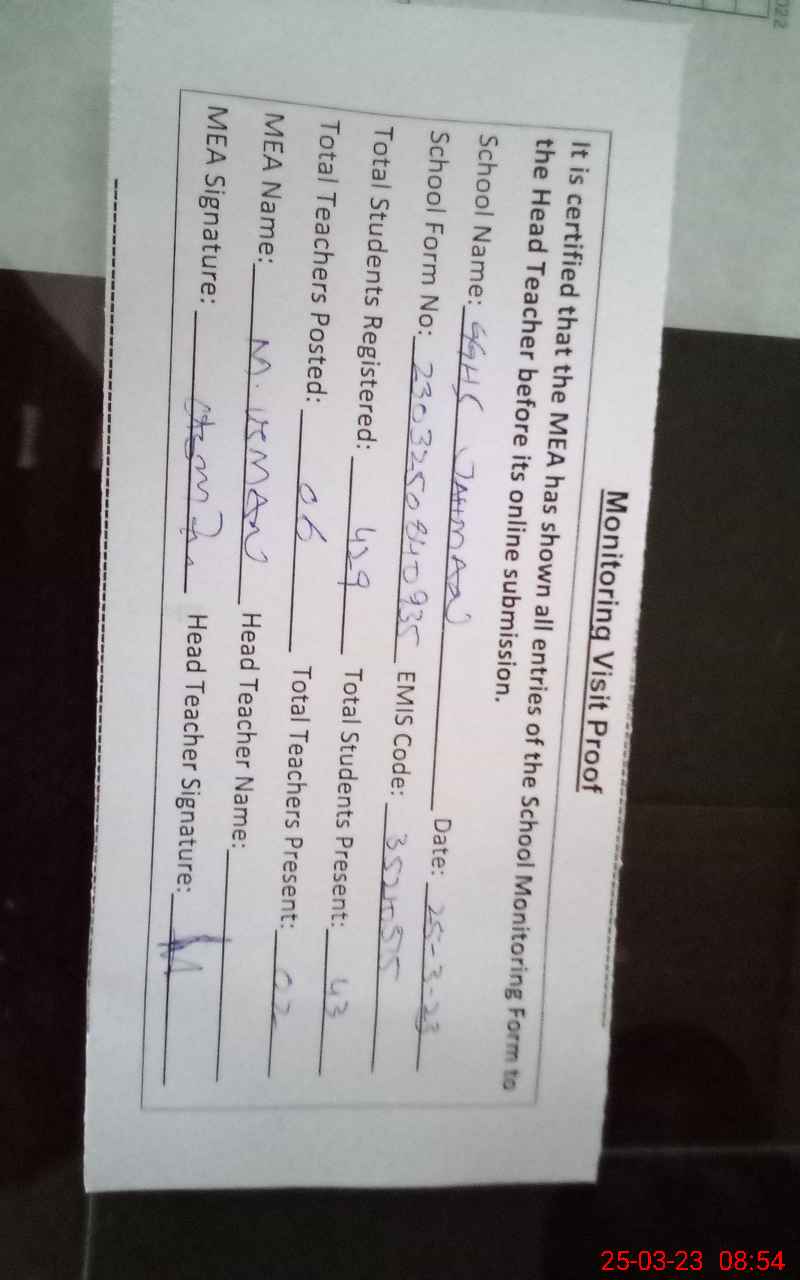 Monitoring Visit Proof
It is certified that the MEA has shown all entries of the School Monitoring Form to
the Head Teacher before its online submission.
School Name: GGHS JAHMAN Date: 25-3-23
School Form No: 2303250840935 EMIS Code: 35210515
Total Students Registered: 429 Total Students Present: 43
Total Teachers Posted: 06 Total Teachers Present: 02
MEA Name: M. USMAN Head Teacher Name:
MEA Signature: Head Teacher Signature:
25-03-23 08:54